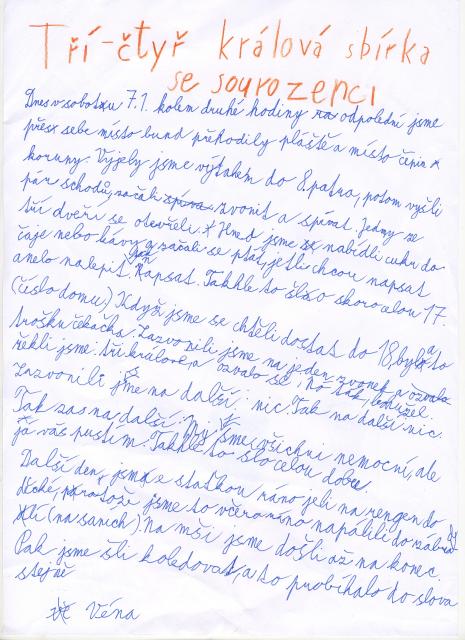 Tří-čtyř králová sbírka
se sourozenci
Dnes v sobotu 7.1. kolem druhé hodiny odpolední jsme
přes sebe místo bund přehodily pláště a místo čepic
koruny. Vyjely jsme výtahem do 8 patra, potom vyšli
pár schodů, začali zvonit a spívat. Jedny ze
tří dveří se otevřeli. Hned jsme nabídli cukr do
čaje nebo kávy a začali se ptát jetli chcou napsat
anebo nalepit. Napsat. Takhle to šlo skoro celou 17.
(číslo domu) Když jsme se chtěli dostat do 18, byla to
trošku čekačka. Zazvonili jsme na jeden zvonek a
řekli jsme: tři králové, a ozvalo se:
Zazvonili jsme na další: nic. Tak na další nic.
Tak zas na další: My jsme všichni nemocní, ale
já vás pustím. Takhle to šlo celou dobu.
Další den, jsme z staťkou ráno jeli na rengen do
protože jsme to včera napálili do
(na saních) Na mši jsme došli až na konec.
Pak jsme šli koledovat, a to probíhalo do slova
stejně
Véna